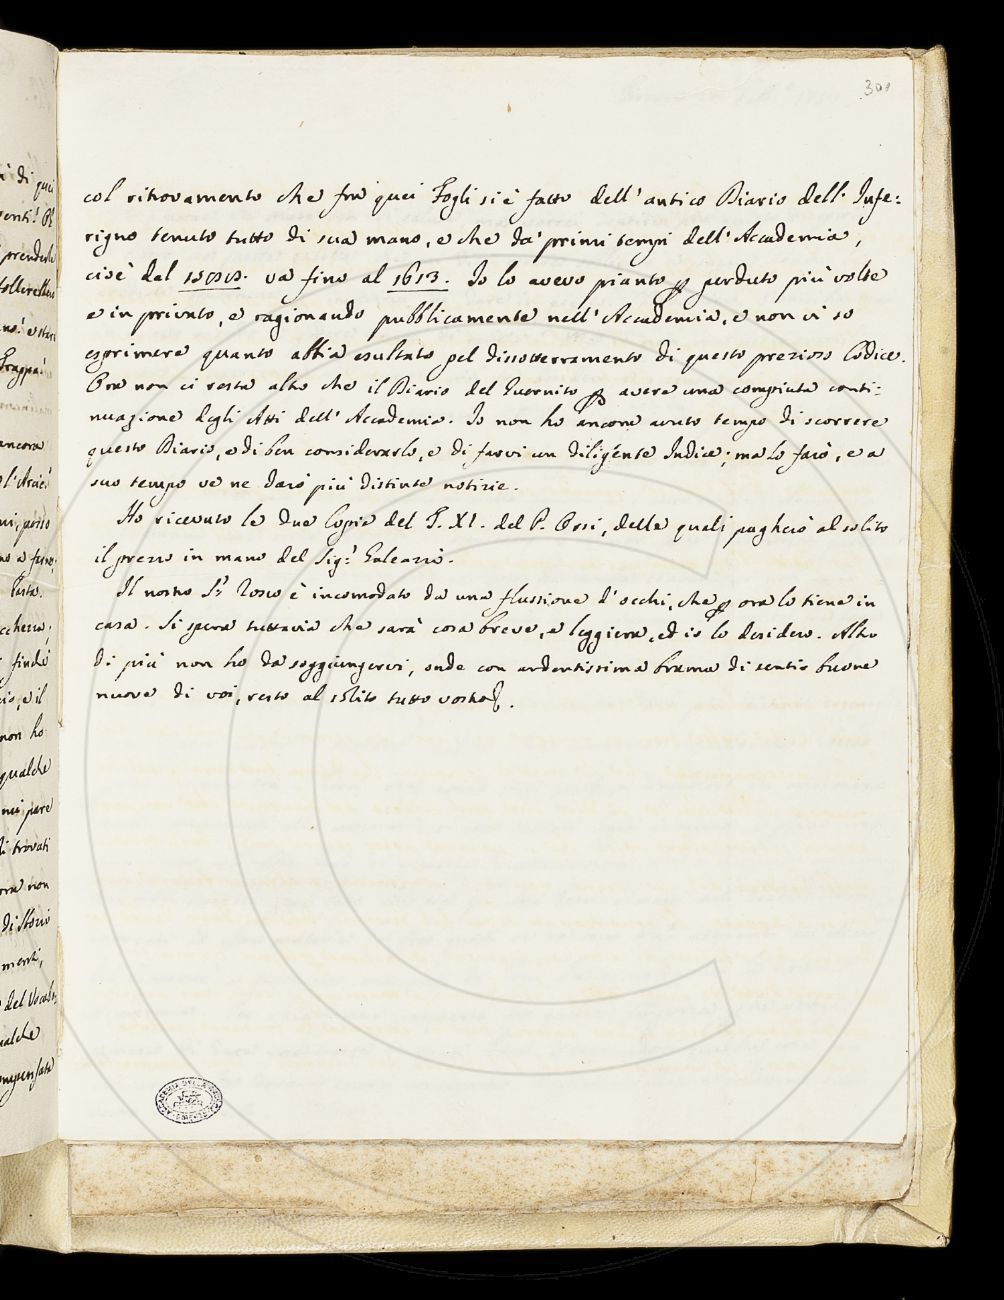 301
col ritrovamento che fra quei Fogli si è fatto dell' antico Diario dell' Infe:
rigno tenuto tutto di sua mano, e che da' primi tempi dell' Accademia,
cioè dal va fino al 1613. Io lo avevo pianto p perduto più volte
e in privato, e ragionando pubblicamente nell' Accademia, e non vi so
esprimere quanto abbia esultato pel dissotterramento di questo prezioso Codice.
Ora non ci resta altro che il Diario del Guernito p avere una compiuta conti:
nuazione degli Atti dell' Accademia. Io non ho ancora avuto tempo di scorrere
questo Diario, e di ben considerarlo, e di farvi un diligente Indice; ma lo farò, e a
suo tempo ve ne darò più distinte notizie.
Ho ricevuto le due Copie del T. XI. del P. Orsi, delle quali pagherò al solito
il prezzo in mano del Sig.r Galeazzi.
Il nostro S.r Rosso è incomodato da una flussione d' occhi, che p ora lo tiene in
casa. Si spera tuttavia che sarà cosa breve, e leggiera, ed io lo desidero. Altro
di più non ho da soggiungervi, onde con ardentissima brama di sentir buone
nuove di voi, resto al solito tutto vostro.